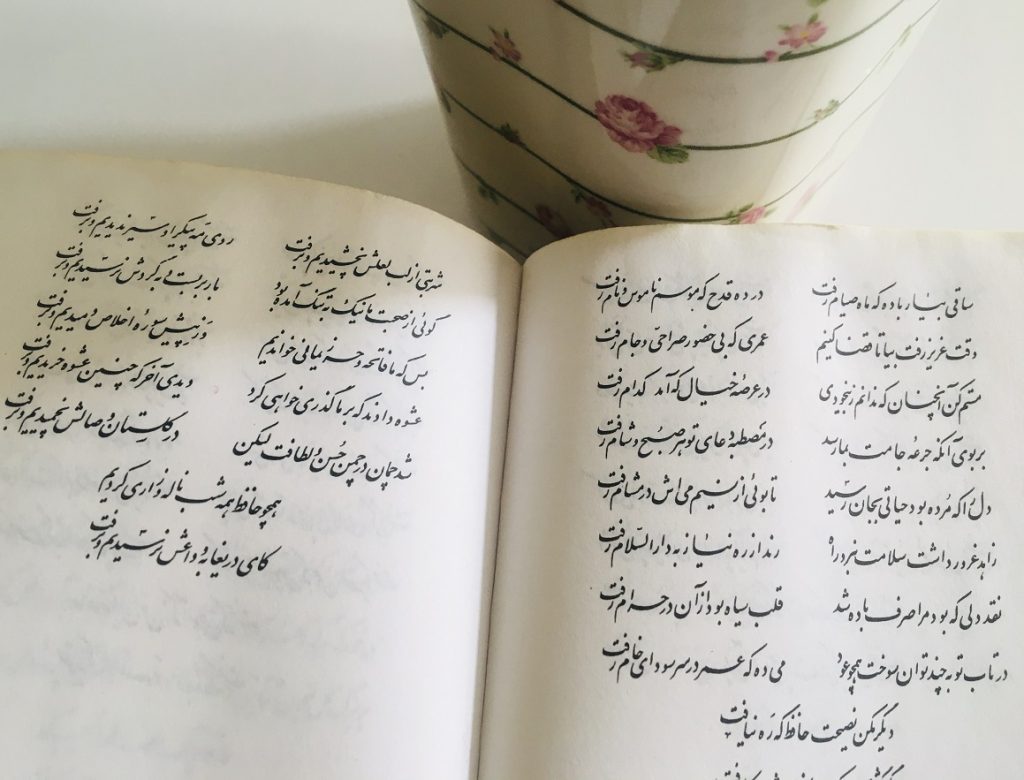 ساقی بیار باده که ماه صیام رفت در ده قدح که موسم ناموس و نام رفت
وقت عزیز رفت بیا تا قضا کنیم عمری که بی حضور صراحی و جام رفت
مستم کن آنچنان که ندانم ز بیخودی در عرصهٔ خیال که آمد کدام رفت
بر بوی آنکه جرعهٔ جامت بما رسد در مصطبه دعای تو هر صبح و شام رفت
دل را که مرده بود حیاتی بجان رسید تا بوئی از نسیم می اش در مشام رفت
زاهد غرور داشت سلامت نبرد راه رند از ره نیاز به دارالسّلام رفت
نقد دلی که بود مرا صرف باده شد قلب سیاه بود از آن در حرام رفت
در تاب توبه چند توان سوخت همچو عود می ده که عمر در سر سودای خام رفت
دیگر مکن نصیحت حافظ که ره نیافت
شربتی از لب لعلش نچشیدیم و برفت روی مه پیکر او سیر ندیدیم و برفت
گوئی از صحبت ما نیک به تنگ آمده بود بار بربست و به گردش نرسیدیم و برفت
بس که ما فاتحه و حرز یمانی خواندیم وز پیش سورهٔ اخلاص دمیدیم و برفت
عشوه دادند که بر ما گذری خواهی کرد دیدی آخر که چنین عشوه خریدیم و برفت
شد چمان در چمن حُسن و لطافت لیکن در گلستان وصالش نچمیدیم و برفت
همچو حافظ همه شب ناله و زاری کردیم
کای دریغا به وداعش نرسیدیم و برفت